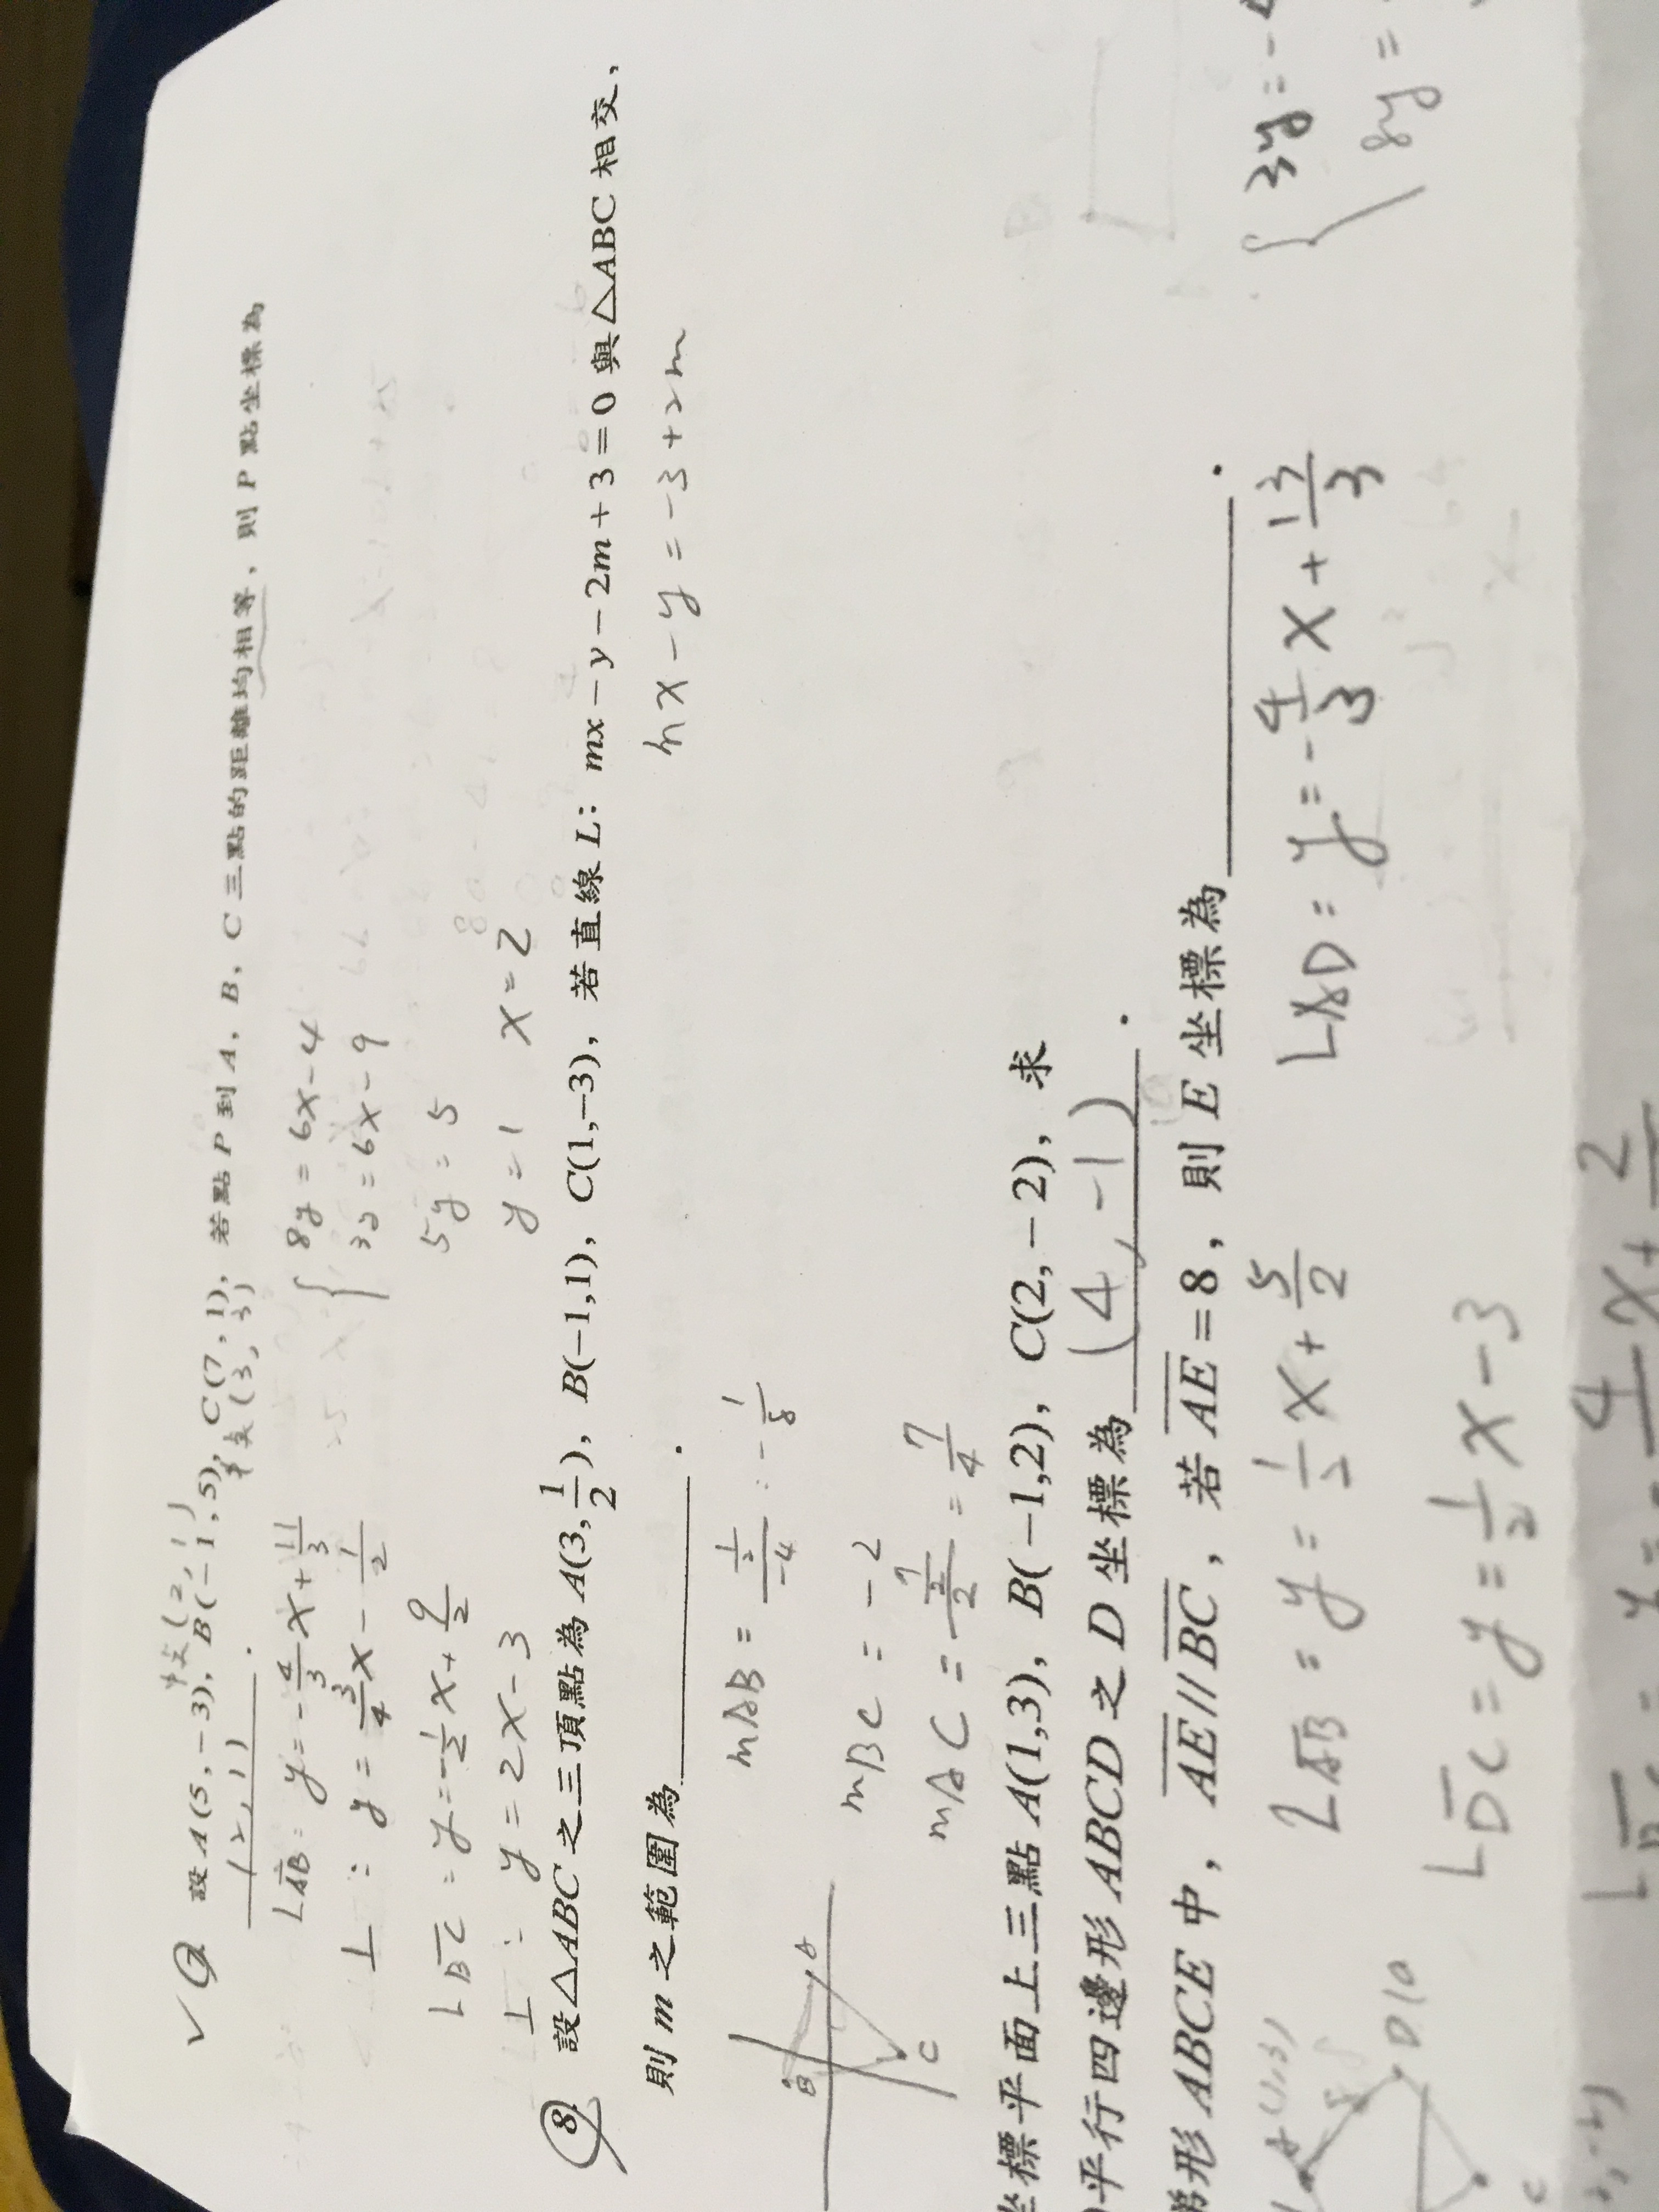 設 A(5,−3), B(−1,5), C(7,1), 若點 P 到 A, B, C 三點的距離均相等, 則 P 點坐標為
(2,1).
中點 (2,1)
中點 (3,3)
L AB: y=-4/3x+11/3
⊥: y=3/4x-1/2
L BC: y=-1/2x+9/2
⊥: y=2x-3
{8y=6x-4
3y=6x-9
5y=5
y=1 x=2
8. 設△ABC 之三頂點為 A(3,1/2), B(−1,1), C(1,−3), 若直線 L: mx−y−2m+3=0 與△ABC 相交,
mx-y=-3+2m
則 m 之範圍為________.
mAB = (1/2)/-4 : -1/8
mBC = -2
mAC = (7/2)/2 = 7/4
B
A
C
坐標平面上三點 A(1,3), B(−1,2), C(2,−2), 求
平行四邊形 ABCD 之 D 坐標為 (4,-1).
梯形 ABCE 中, AE//BC, 若 AE=8, 則 E 坐標為________.
L AB = y = 1/2x+5/2
L AD = y = -4/3x+13/3
L DC = y = 1/2x-3
{3y=-4
8y=
A(1,3)
8
D
C